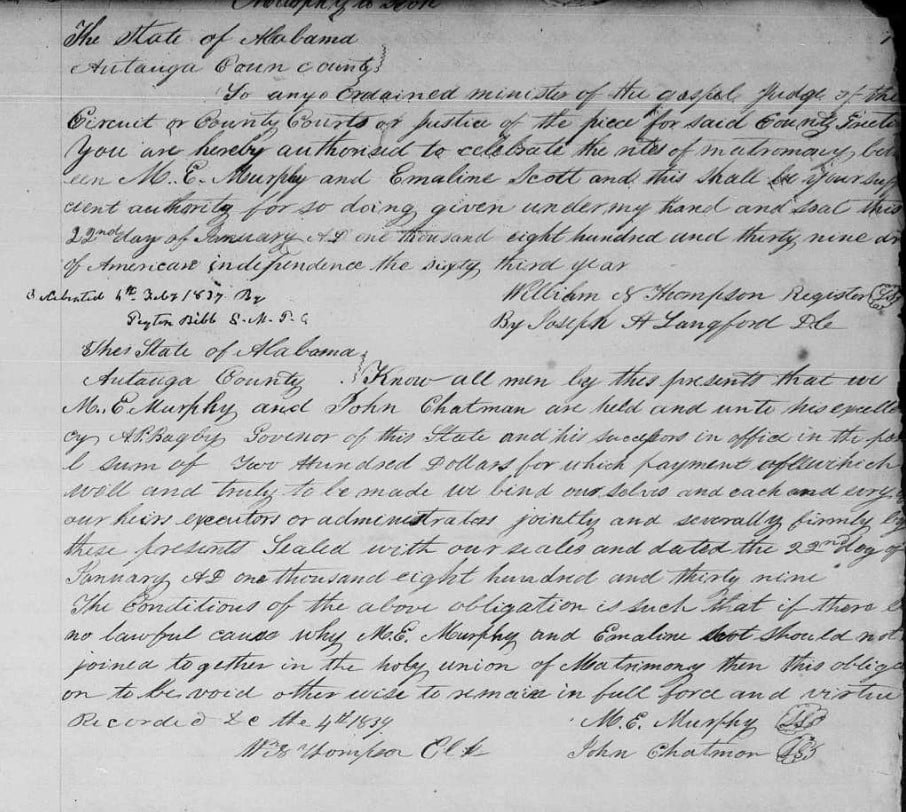 Murphy to Scott
The State of Alabama
Autauga Coun county
To anyo Ordained minister of the gospel Judge of the
Circuit or County Courts or Justice of the piece for said County
You are hereby authorised to celebrate the rites of matromony betw
een M. E. Murphy and Emaline Scott and this shall be your suffi
cient authority for so doing given under my hand and seal this
22nd day of January AD one thousand eight hundred and thirty nine
of American independence the sixty third year
William N Thompson Register LS
Celebrated 4th Feby 1839 By
Peyton Bibb By Joseph A Langford D C
The State of Alabama
Autauga County Know all men by thes presents that we
M. E Murphy and John Chatman are held and unto his excellen
cy A P Bagby Govenor of this State and his successors in office in the
l sum of Two Hundred Dollars for which payment which
well and truly to be made we bind our selves and each and evry of
our heirs executors or administrators jointly and severally firmly by
these presents Sealed with our seales and dated the 22nd day of
January AD one thousand eight hundred and thirty nine
The Conditions of the above obligation is such that if there be
no lawful cause why M. E. Murphy and Emaline Scot should not
joined together in the holy union of Matrimony then this obligati
on to be void other wise to remain in full force and virtue
Recorded &c the 4th 1839 M. E. Murphy LS
Wm N Thompson Clk John Chatmon LS